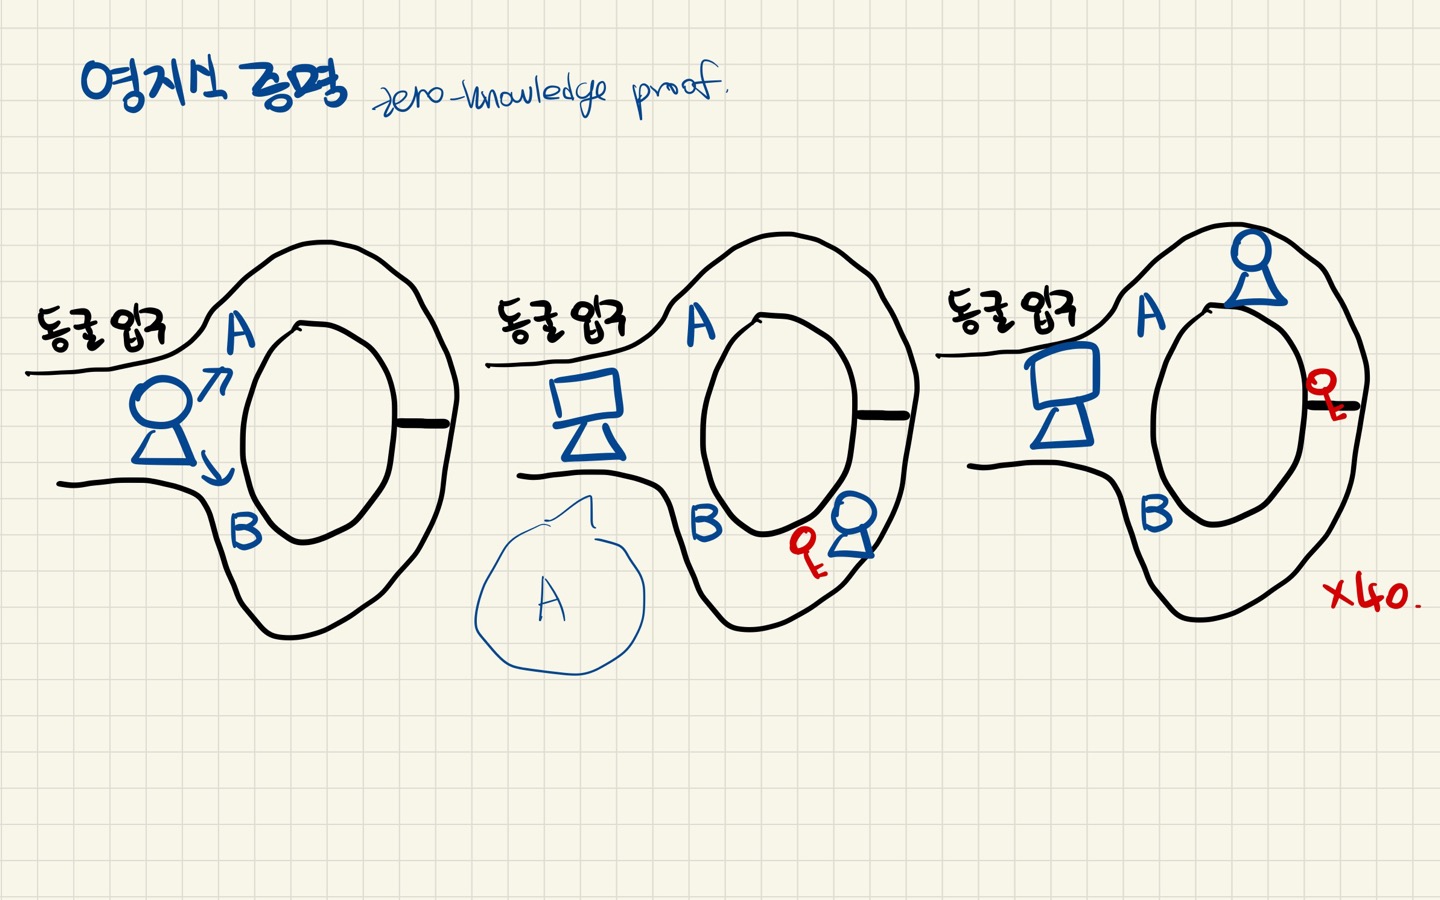 영지식 증명 zero-knowledge proof.
동굴 입구
A
B
동굴 입구
A
B
A
동굴 입구
A
B
x40.